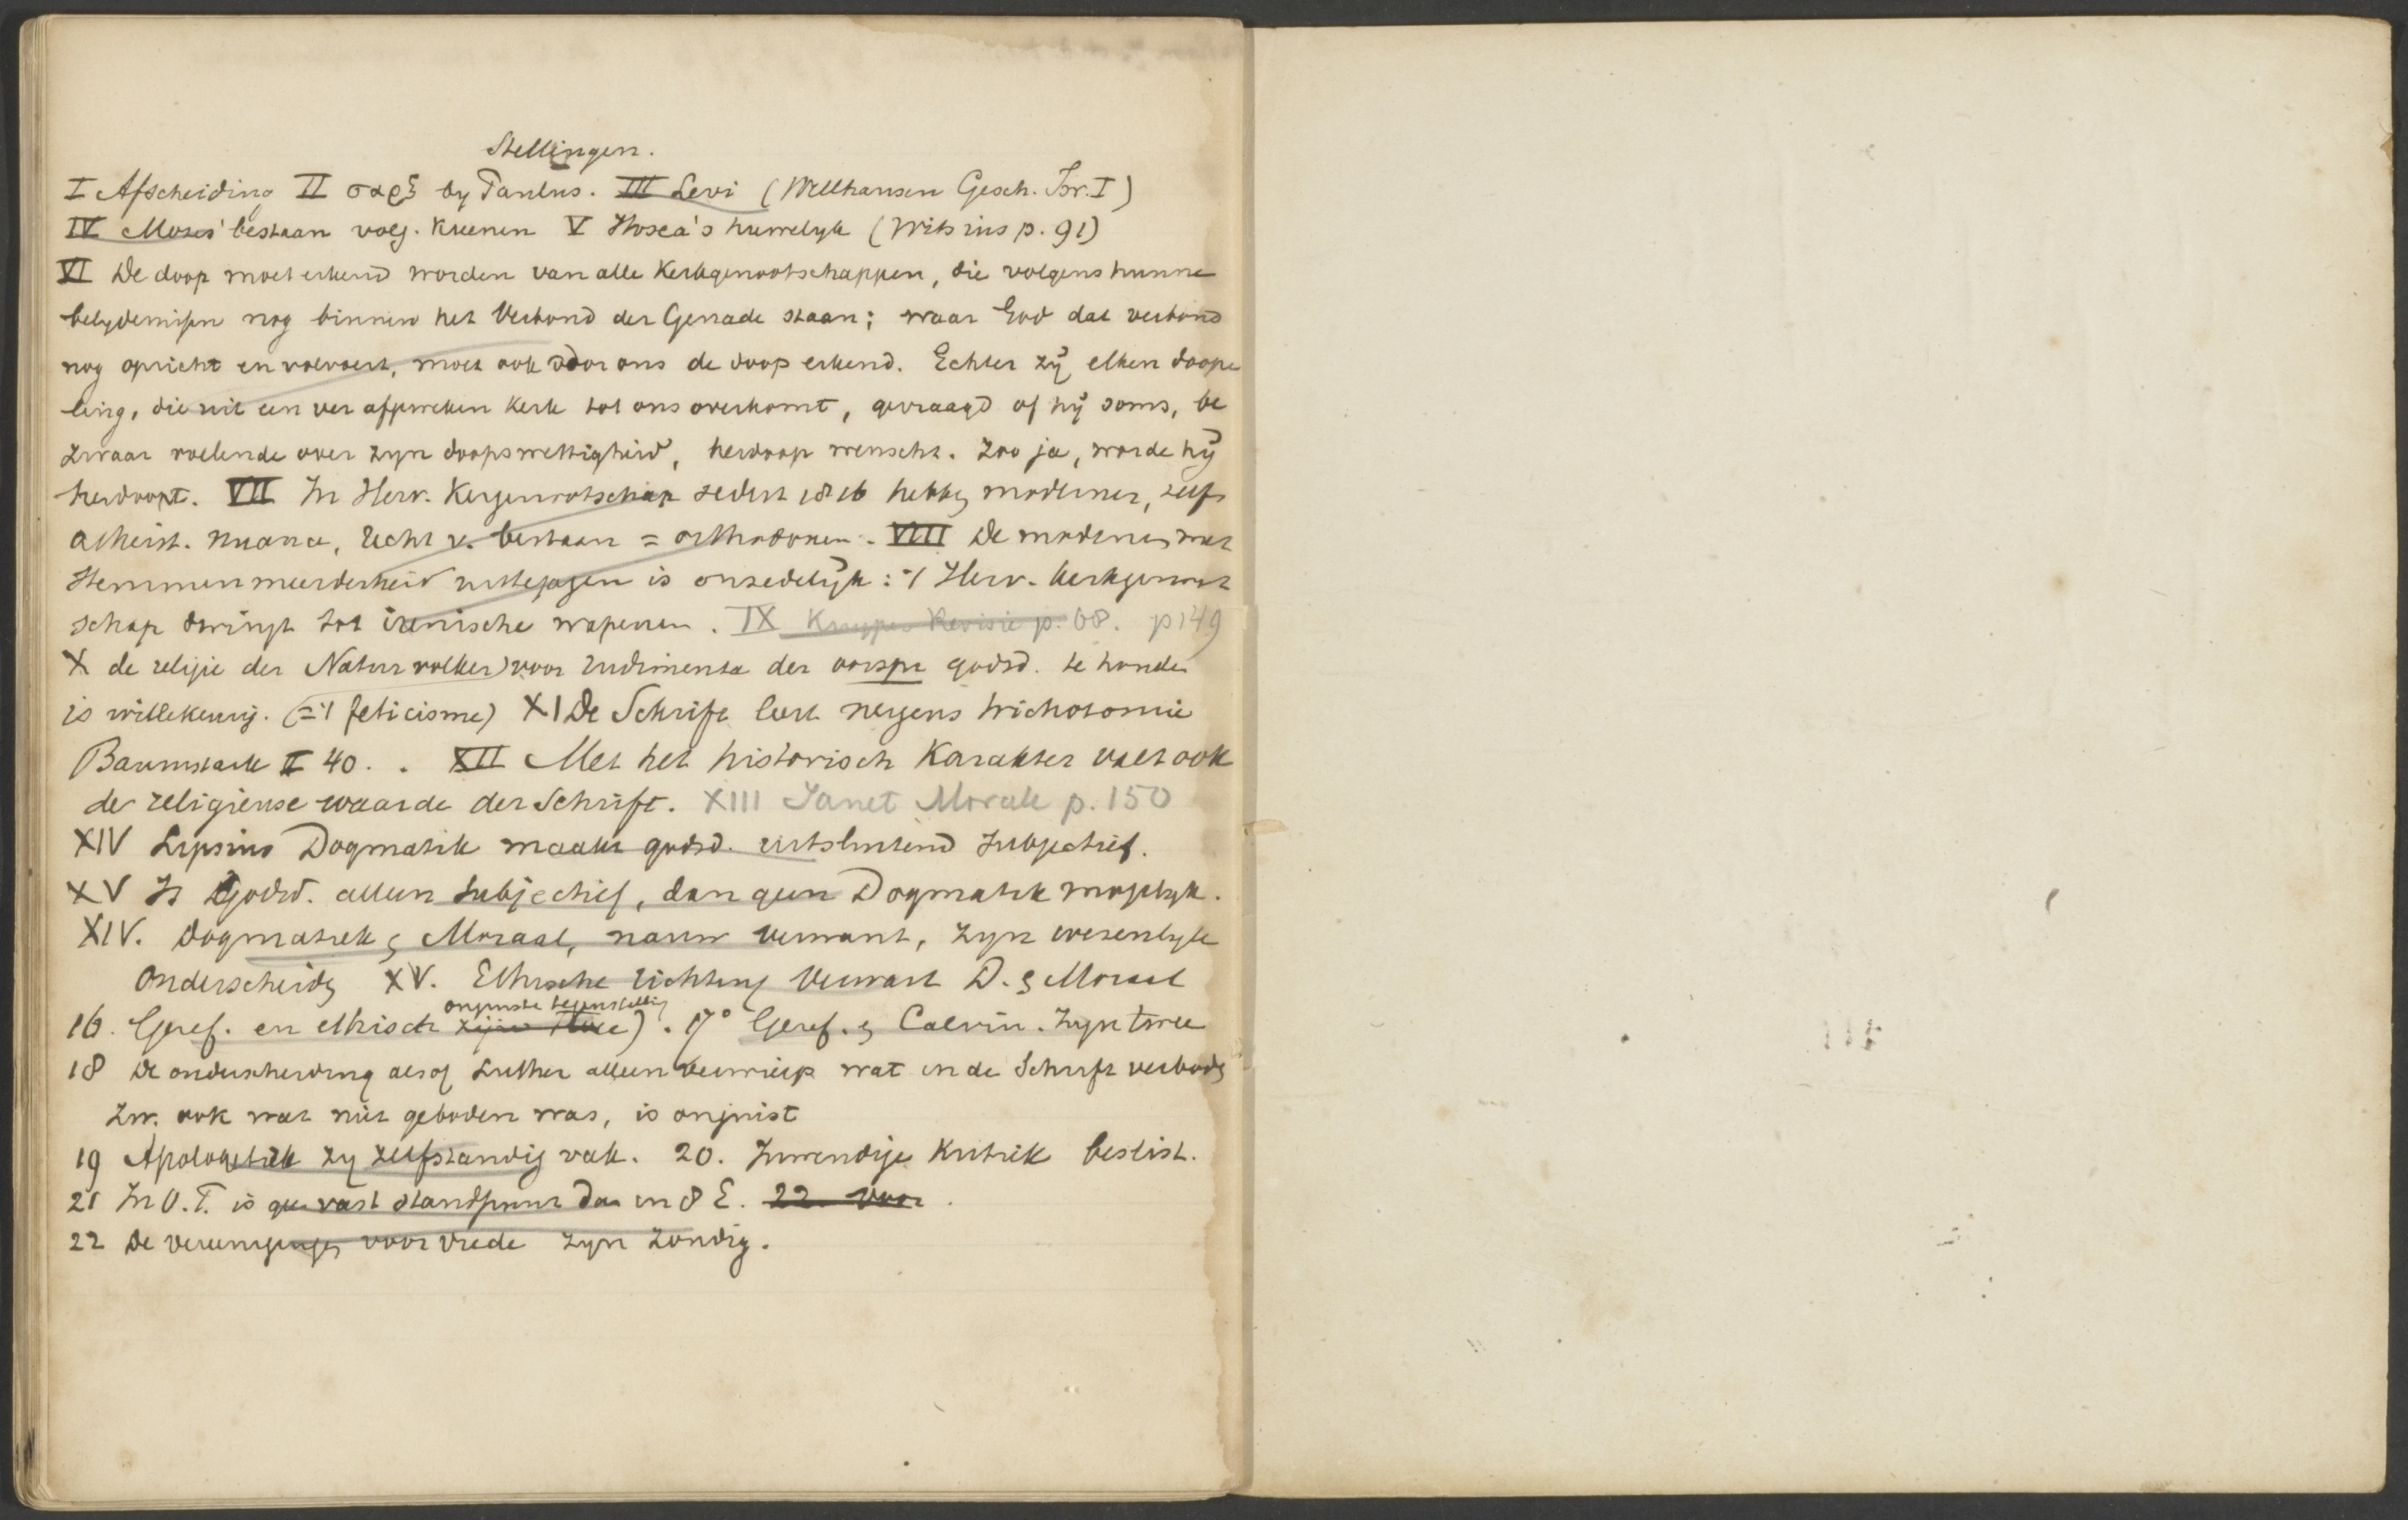 Stellingen.
I Afscheiding II σαρξ by Paulus. III Levi (Wellhausen Gesch. Isr. I)
IV Mozes' bestaan volg. Kuenen V Hosea's huwelyk (Witsius p. 91)
VI De doop moet erkend worden van alle Kerkgenootschappen, die volgens hunne
belydenissen nog binnen het Verbond der Genade staan; waar God dat verbond
nog opricht en volvoert, moet ook door ons de doop erkend. Echter zij elken doope
ling, die uit een ver afgeweken Kerk tot ons overkomt, gevraagd of hij soms, be
zwaar voelende over zyn doopswettigheid, herdoop wenscht. Zoo ja, worde hij
herdoopt. VII In Herv. Kergenootschap sedert 1816 hebbn modernen, zelfs
atheist. nuance, recht v. bestaan = orthodoxen. VIII De modernen met
stemmenmeerderheid uittejagen is onzedelijk: 't Herv. Kerkgenoot
schap dwingt tot irenische wapenen. IX Kuyper Revisie p. 68. p 149
X de religie der Naturvolker) voor rudimenta der oorspr godsd. te houden
is willekeurig. (= 't feticisme) XI De Schrift leert nergens trichotomie
Baumstark II 40. . XII Met het historisch Karakter valt ook
de religieuse waarde der Schrift. XIII Janet Morale p. 150
XIV Lipsius Dogmatik maakt godsd. uitsluitend subjectief.
XV Is Godsd. alleen subjectief, dan geen Dogmatik mogelyk.
XIV. Dogmatiek en Moraal, nauw verwant, zyn wezenlyk
onderscheidn XV. Ethische richting verwart D. en Moraal
onjuiste tegenstelling
16. Geref. en ethisch zijn twee). 17° Geref. en Calvin. zyn twee
18 De onderscheiding alsof Luther alleen verwierp wat in de Schrift verbodn
Zw. ook wat niet geboden was, is onjuist
19 Apologetiek zy zelfstandig vak. 20. Inwendige Kritiek beslist.
21 In O.T. is geen vast standpunt dan in 8 E. 22 Voor
22 De vereenigingen voor vrede zyn zondig.